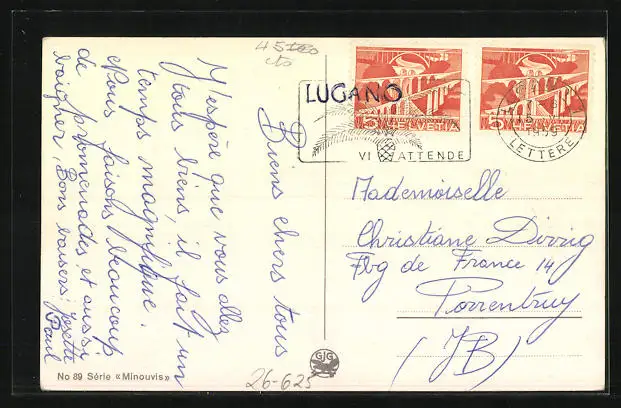 45
LUGANO
VI ATTENDE
5 HELVETIA
5 HELVETIA
LETTERE
Biens chers tous
J'espère que vous allez
tous biens, il fait un
temps magnifique.
Nous faisons beaucoup
de promenades et aussi
baigner, Bons baisers.
Paul
Mademoiselle
Christiane
Fbg de France 14
Porrentruy
(JB)
GJG
No 89 Série «Minouvis»
26-625